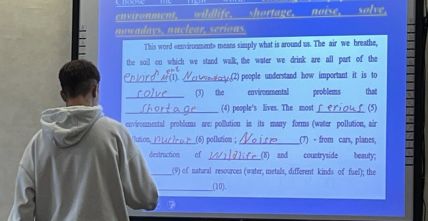 Choose the right word:
environment, wildlife, shortage, noise, solve,
nowadays, nuclear, serious.
This word «environment» means simply what is around us. The air we breathe,
the soil on which we stand walk, the water we drink are all part of the
(1). Nowadays (2) people understand how important it is to
solve (3) the environmental problems that
shortage (4) people's lives. The most serious (5)
environmental problems are: pollution in its many forms (water pollution, air
(6) pollution; Noise (7) - from cars, planes,
destruction of Wildlife (8) and countryside beauty;
(9) of natural resources (water, metals, different kinds of fuel); the
(10).